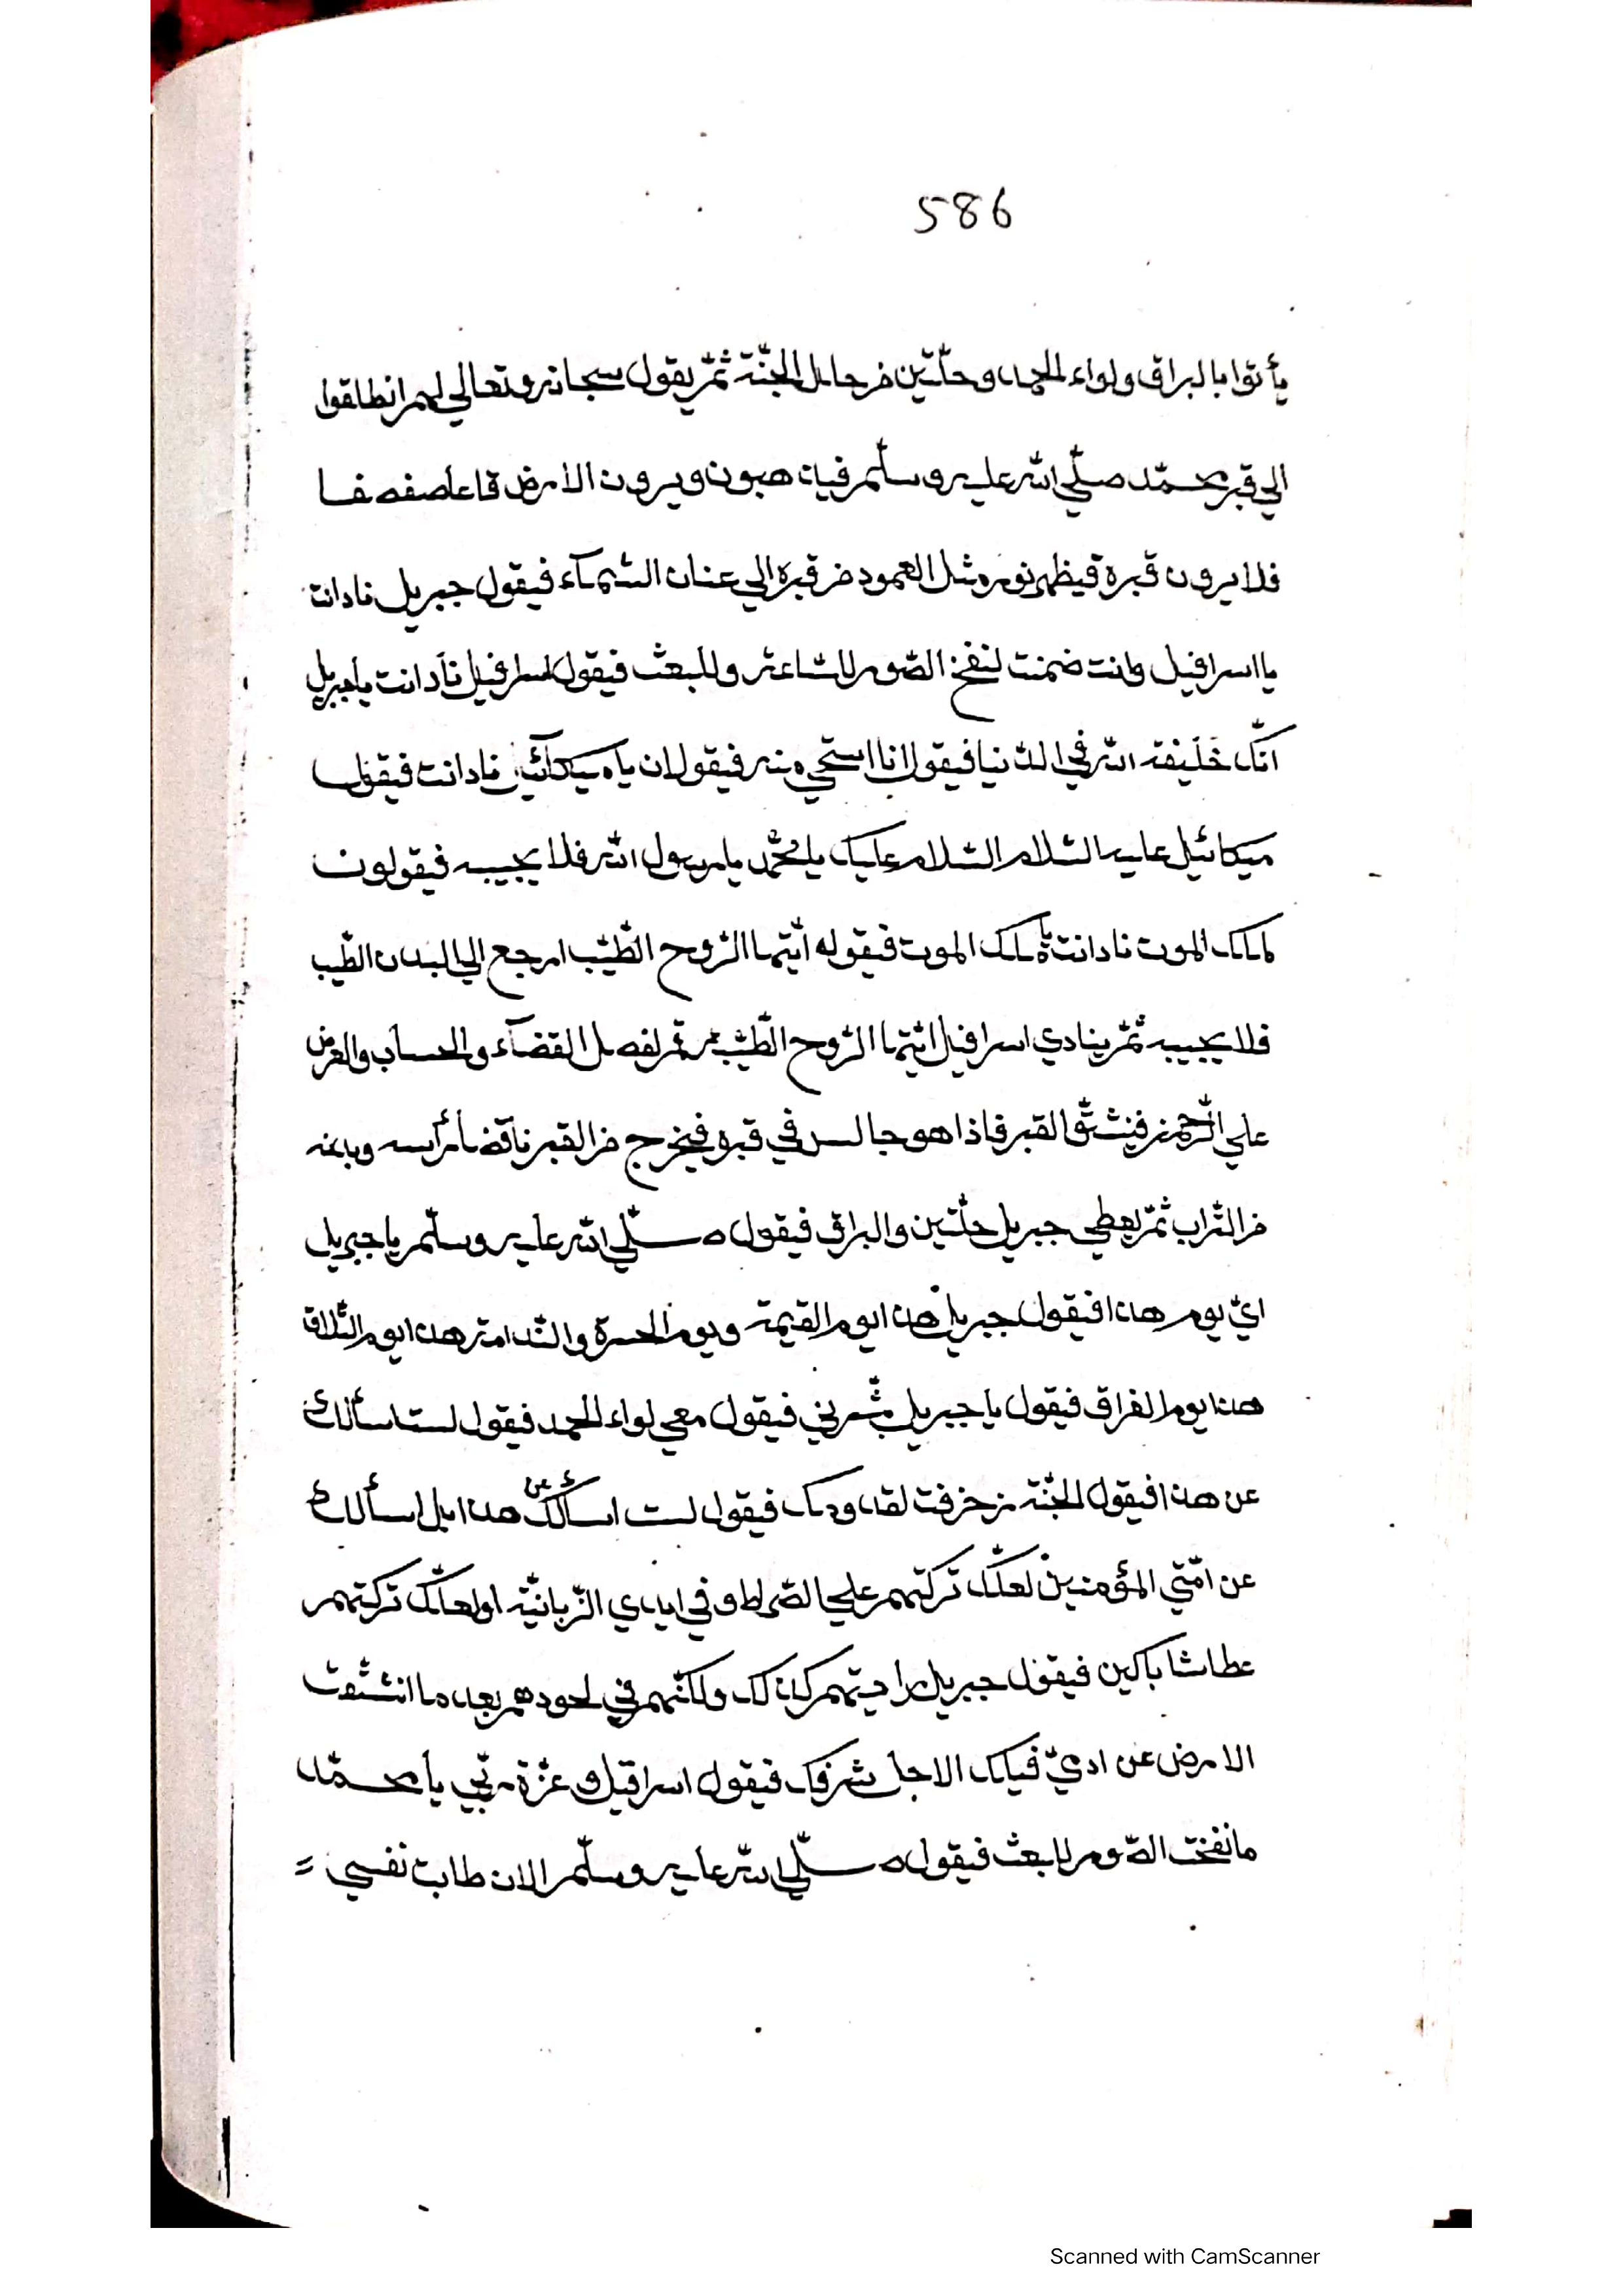 586
يأتوا بالبراق ولواء الحمد وحلّتين من حلل الجنّة ثمّ يقول سبحانه وتعالي لهم انطلقوا
الي قبر محمّد صلّي الله عليه وسلّم فيذهبون ويرون الارض قاعا صفصفا
فلا يرون قبره فيظهر نوره مثل العمود من قبره الي عنان السّمآء فيقول جبريل ناد انت
يا اسرافيل وانت ضمنت لنفخ الصّور للسّاعة وللبعث فيقول اسرافيل ناد انت يا جبريل
انّك خليفة الله في الدّنيا فيقول انا استحي منه فيقولان يا ميكآئيل ناد انت فيقول
ميكائيل عليه السّلام السّلام عليك يا محمّد يا رسول الله فلا يجيبه فيقولون
لملك الموت ناد انت يا ملك الموت فيقوله ايّتها الرّوح الطّيّب ارجع الي البدن الطّيب
فلا يجيبه ثمّ ينادي اسرافيل ايّتها الرّوح الطّيّب قم لفصل القضآء والحساب والعرض
علي الرّحمن فينشقّ القبر فاذا هو جالس في قبره فيخرج من القبر ناقضا رأسه وبدنه
من التّراب ثمّ يعطي جبريل حلّتين والبراق فيقول صلّي الله عليه وسلّم يا جبريل
ايّ يوم هذا فيقول جبريل هذا يوم القيمة ويوم الحسرة والنّدامة هذا يوم التّلاق
هذا يوم الفراق فيقول يا جبريل بشّرني فيقول معي لواء الحمد فيقول لست اسألك
عن هذا فيقول الجنّة زخرفت لقدومك فيقول لست اسألك عن هذا بل اسألك
عن امّتي المؤمنين لعلّك تركتهم علي الصّراط و في ايدي الزّبانيّة او لعلّك تركتهم
عطاشا باكين فيقول جبريل ما رايتهم كذلك ولكنّهم في لحودهم بعد ما انشقّت
الارض عن احد قبلك الا لاجل شرفك فيقول اسرافيل و عزّة ربّي يا محمّد
ما نفخت الصّور للبعث فيقول صلّي الله عليه وسلّم الان طابت نفسي =
Scanned with CamScanner